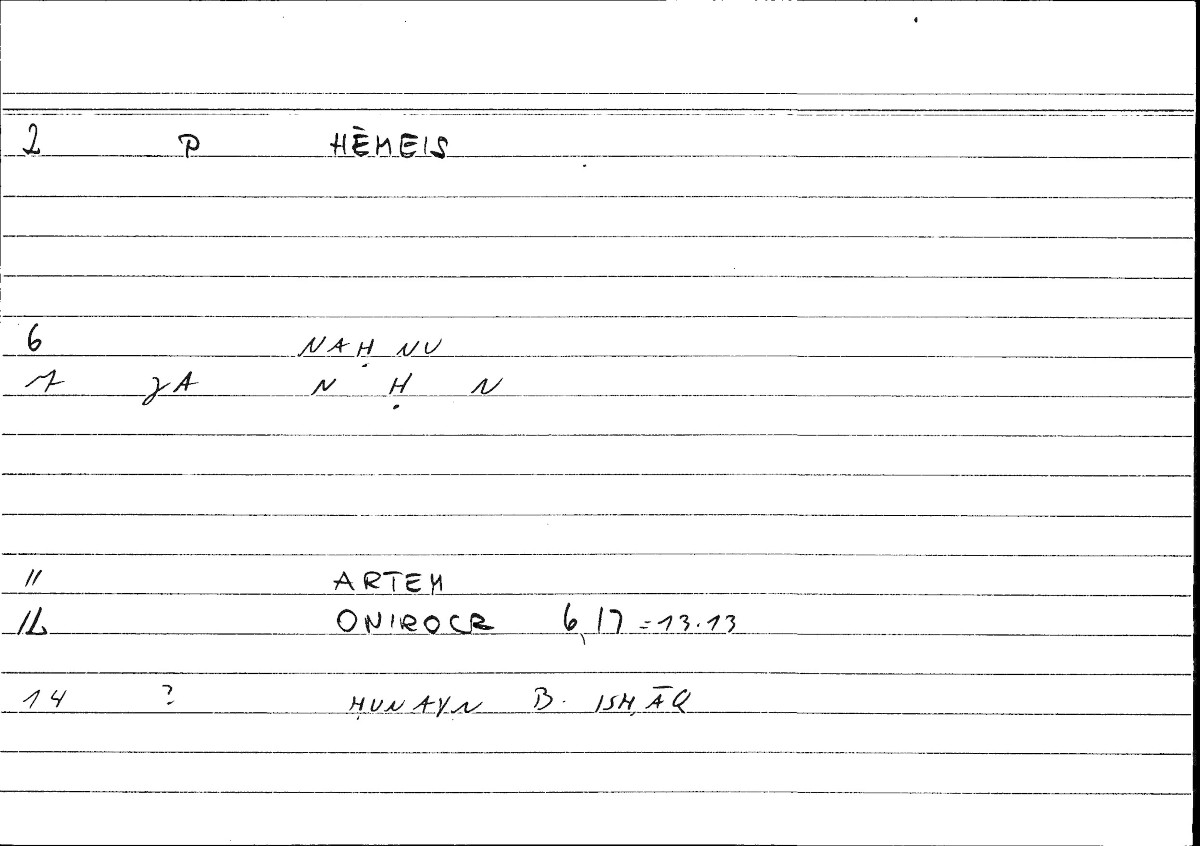 2 P HÈMEIS
6 NAḤNU
7 JA N Ḥ N
11 ARTEM
12 ONIROCR 6,17 = 13.13
14 ? ḤUNAYN B. ISḤĀQ